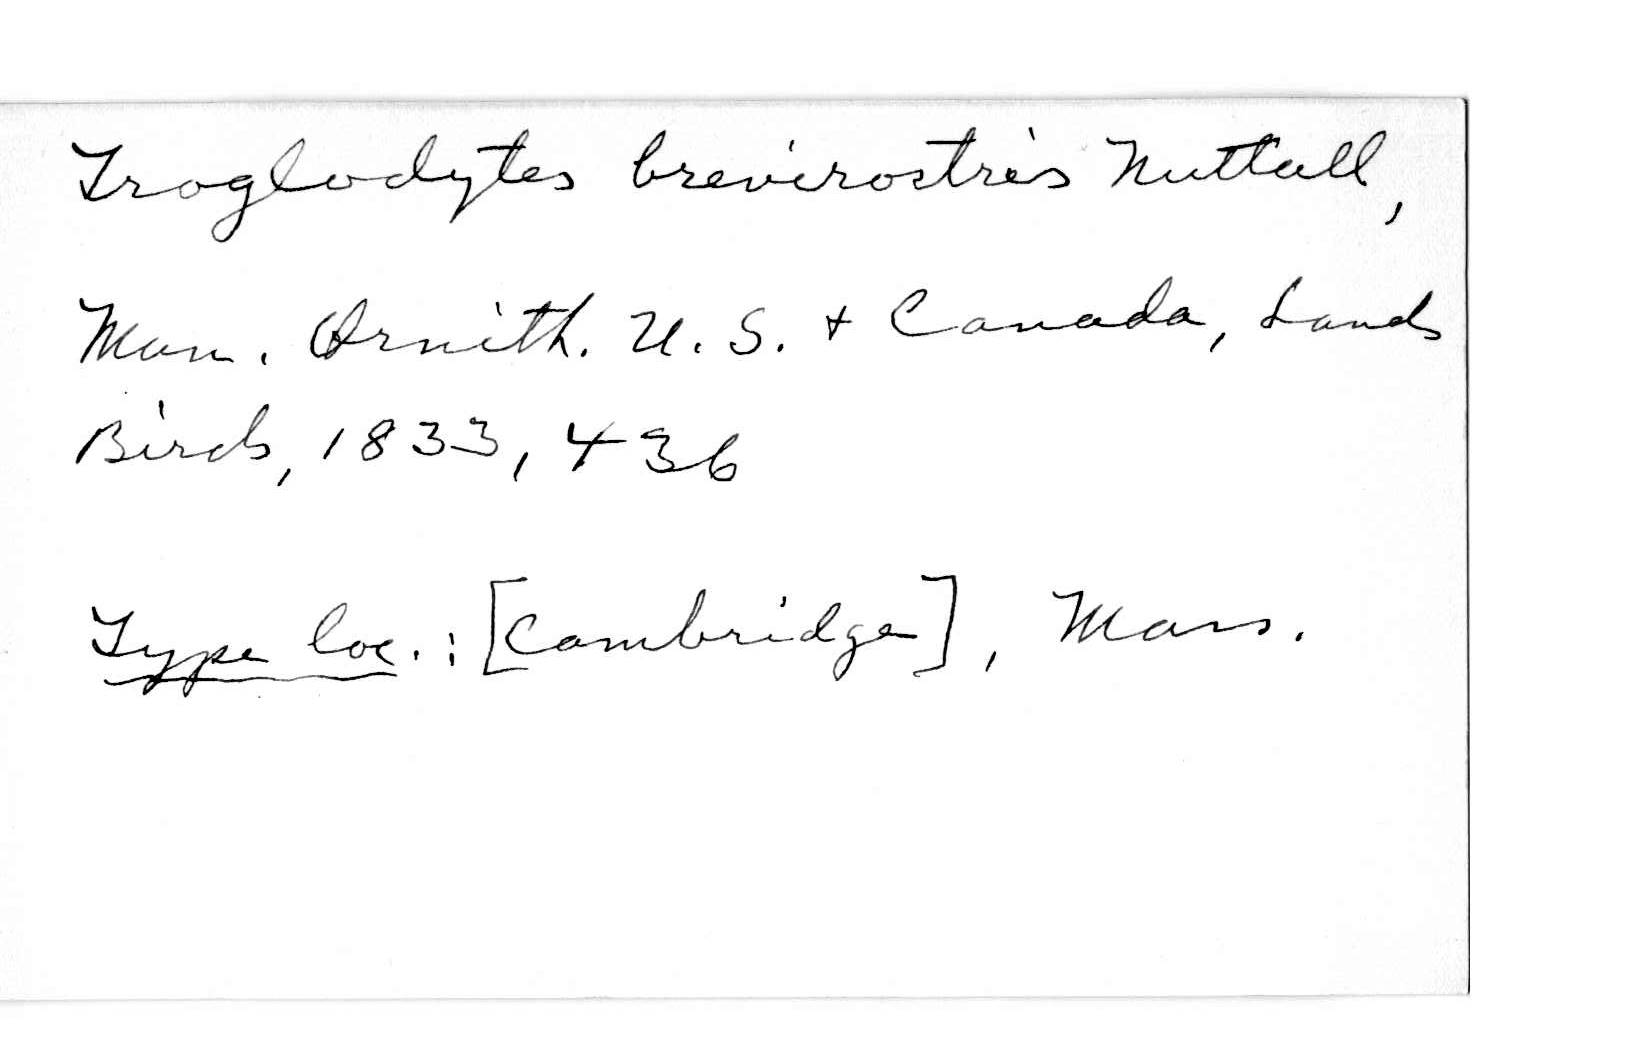 Troglodytes brevirostris Nuttall,
Man. Ornith. U.S. + Canada, Lands
Birds, 1833, 436
Type loc.: [Cambridge], Mass.